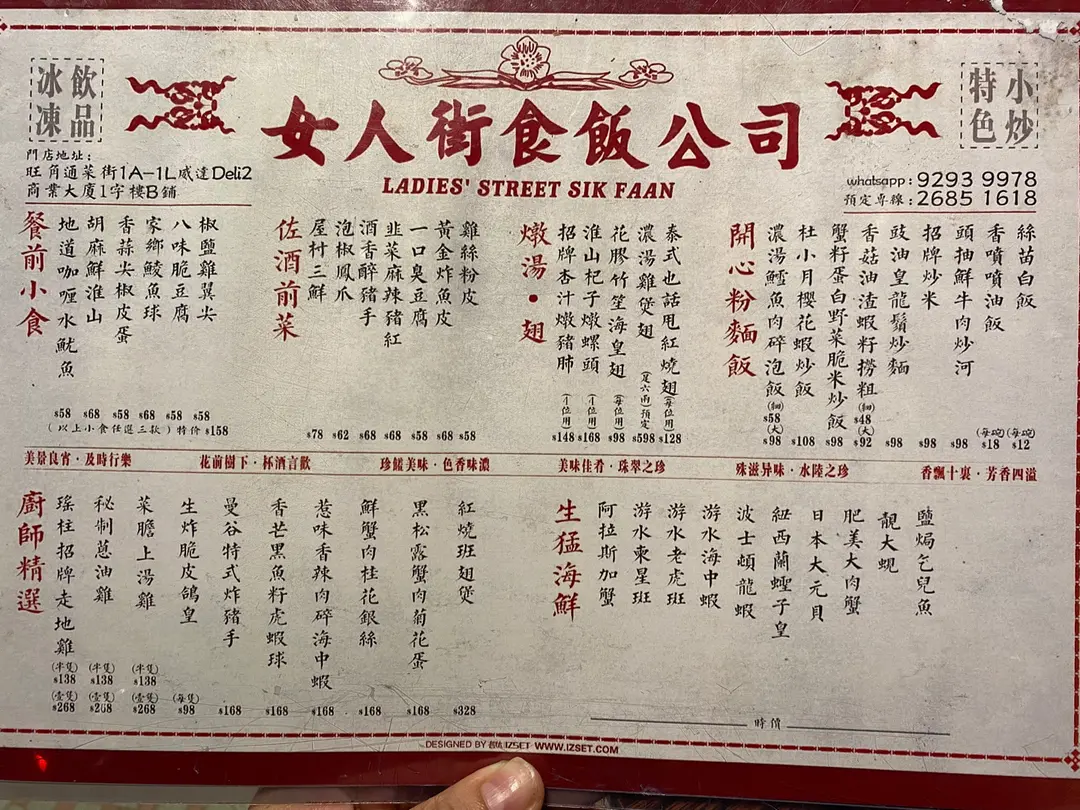 飲品
冰凍
特色
小炒
女人街食飯公司
LADIES' STREET SIK FAAN
門店地址：
旺角通菜街1A-1L威達Deli2
商業大廈1字樓B鋪
whatsapp：9293 9978
預定專線：2685 1618
餐前小食
地道咖喱水魷魚 $58
胡麻鮮淮山 $68
香蒜尖椒皮蛋 $58
家鄉鯪魚球 $68
八味脆豆腐 $58
椒鹽雞翼尖 $58
（以上小食任選三款）特价 $158
佐酒前菜
屋村三鮮 $78
泡椒鳳爪 $62
酒香醉豬手 $68
韭菜麻辣豬紅 $68
一口臭豆腐 $58
黃金炸魚皮 $68
雞絲粉皮 $58
燉湯·翅
招牌杏汁燉豬肺 (1位用) $148
淮山杞子燉螺頭 (1位用) $168
花膠竹笙海皇翅 (每位用) $98
濃湯雞煲翅 (足六両)預定 $598
泰式也話甩紅燒翅 (每位用) $128
開心粉麵飯
濃湯鱈魚肉碎泡飯 (細) $58 (大) $98
杜小月櫻花蝦炒飯 $108
蟹籽蛋白野菜脆米炒飯 $98
香菇油渣蝦籽撈粗 (細) $48 (大) $92
豉油皇龍鬚炒麵 $98
招牌炒米 $98
頭抽鮮牛肉炒河 $98
香噴噴油飯 (每碗) $18
絲苗白飯 (每碗) $12
美景良宵·及時行樂
花前樹下·杯酒言歡
珍饈美味·色香味濃
美味佳肴·珠翠之珍
殊滋异味·水陸之珍
香飄十裏·芳香四溢
廚師精選
瑤柱招牌走地雞 (半隻) $138 (壹隻) $268
秘制蔥油雞 (半隻) $138 (壹隻) $268
菜膽上湯雞 (半隻) $138 (壹隻) $268
生炸脆皮鴿皇 (每隻) $98
曼谷特式炸豬手 $168
香芒黑魚籽虎蝦球 $168
惹味香辣肉碎海中蝦 $168
鮮蟹肉桂花銀絲 $168
黑松露蟹肉菊花蛋 $168
紅燒班翅煲 $328
生猛海鮮
阿拉斯加蟹
游水東星班
游水老虎班
游水海中蝦
波士頓龍蝦
紐西蘭蟶子皇
日本大元貝
肥美大肉蟹
靚大蜆
鹽焗乞兒魚
時價
DESIGNED BY IZSET WWW.IZSET.COM